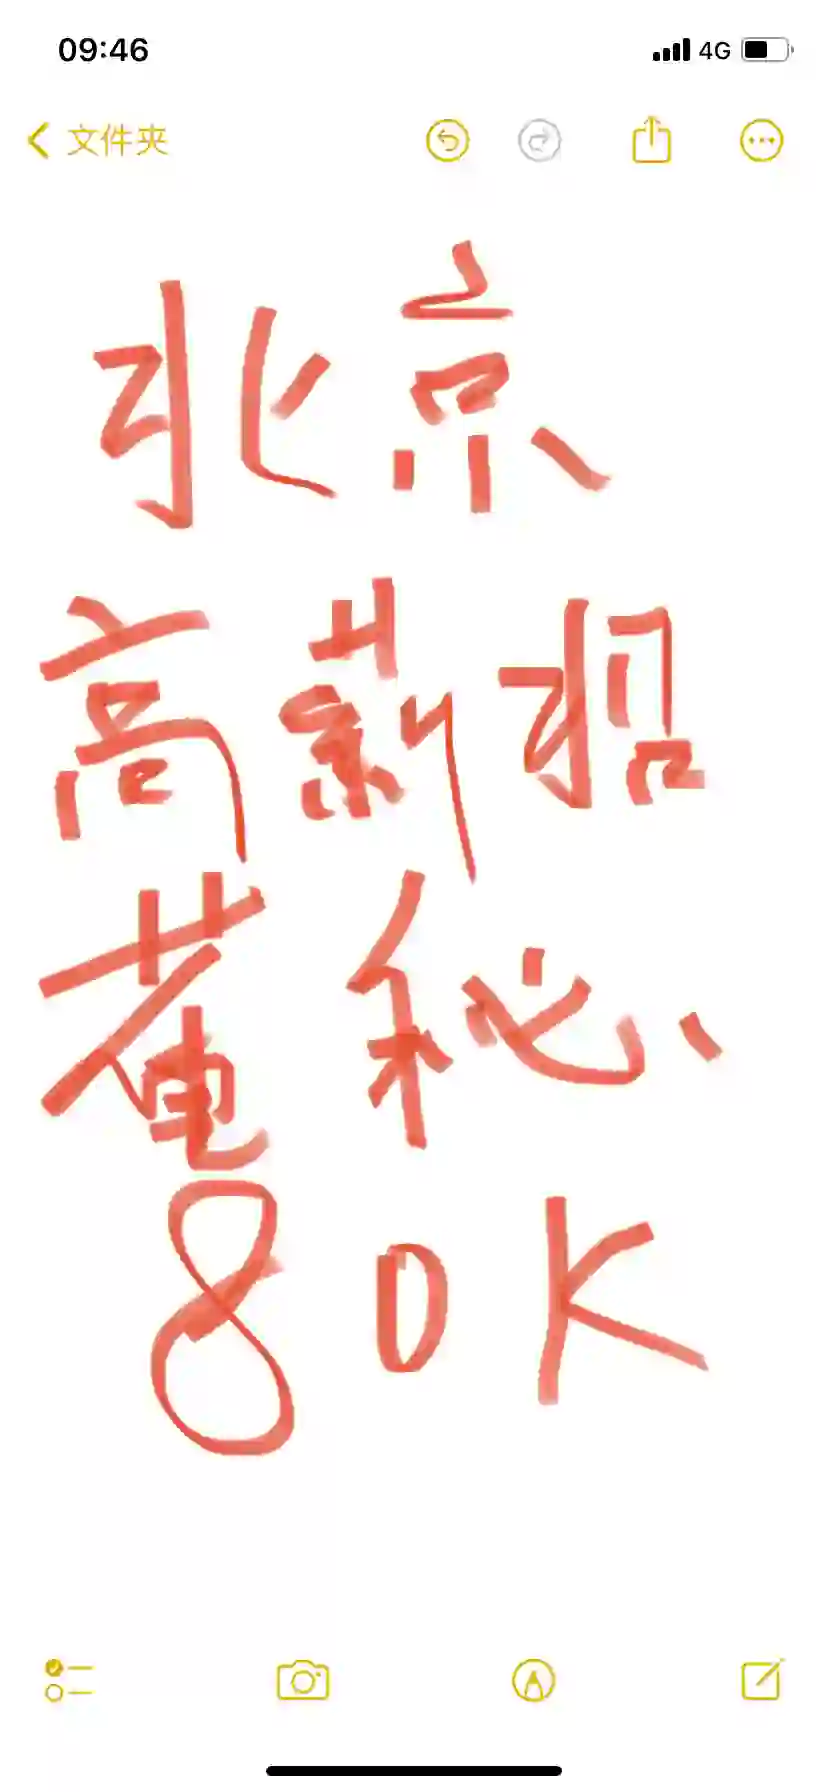 09:46
4G
文件夹
北京
高薪招
菴秘
80K